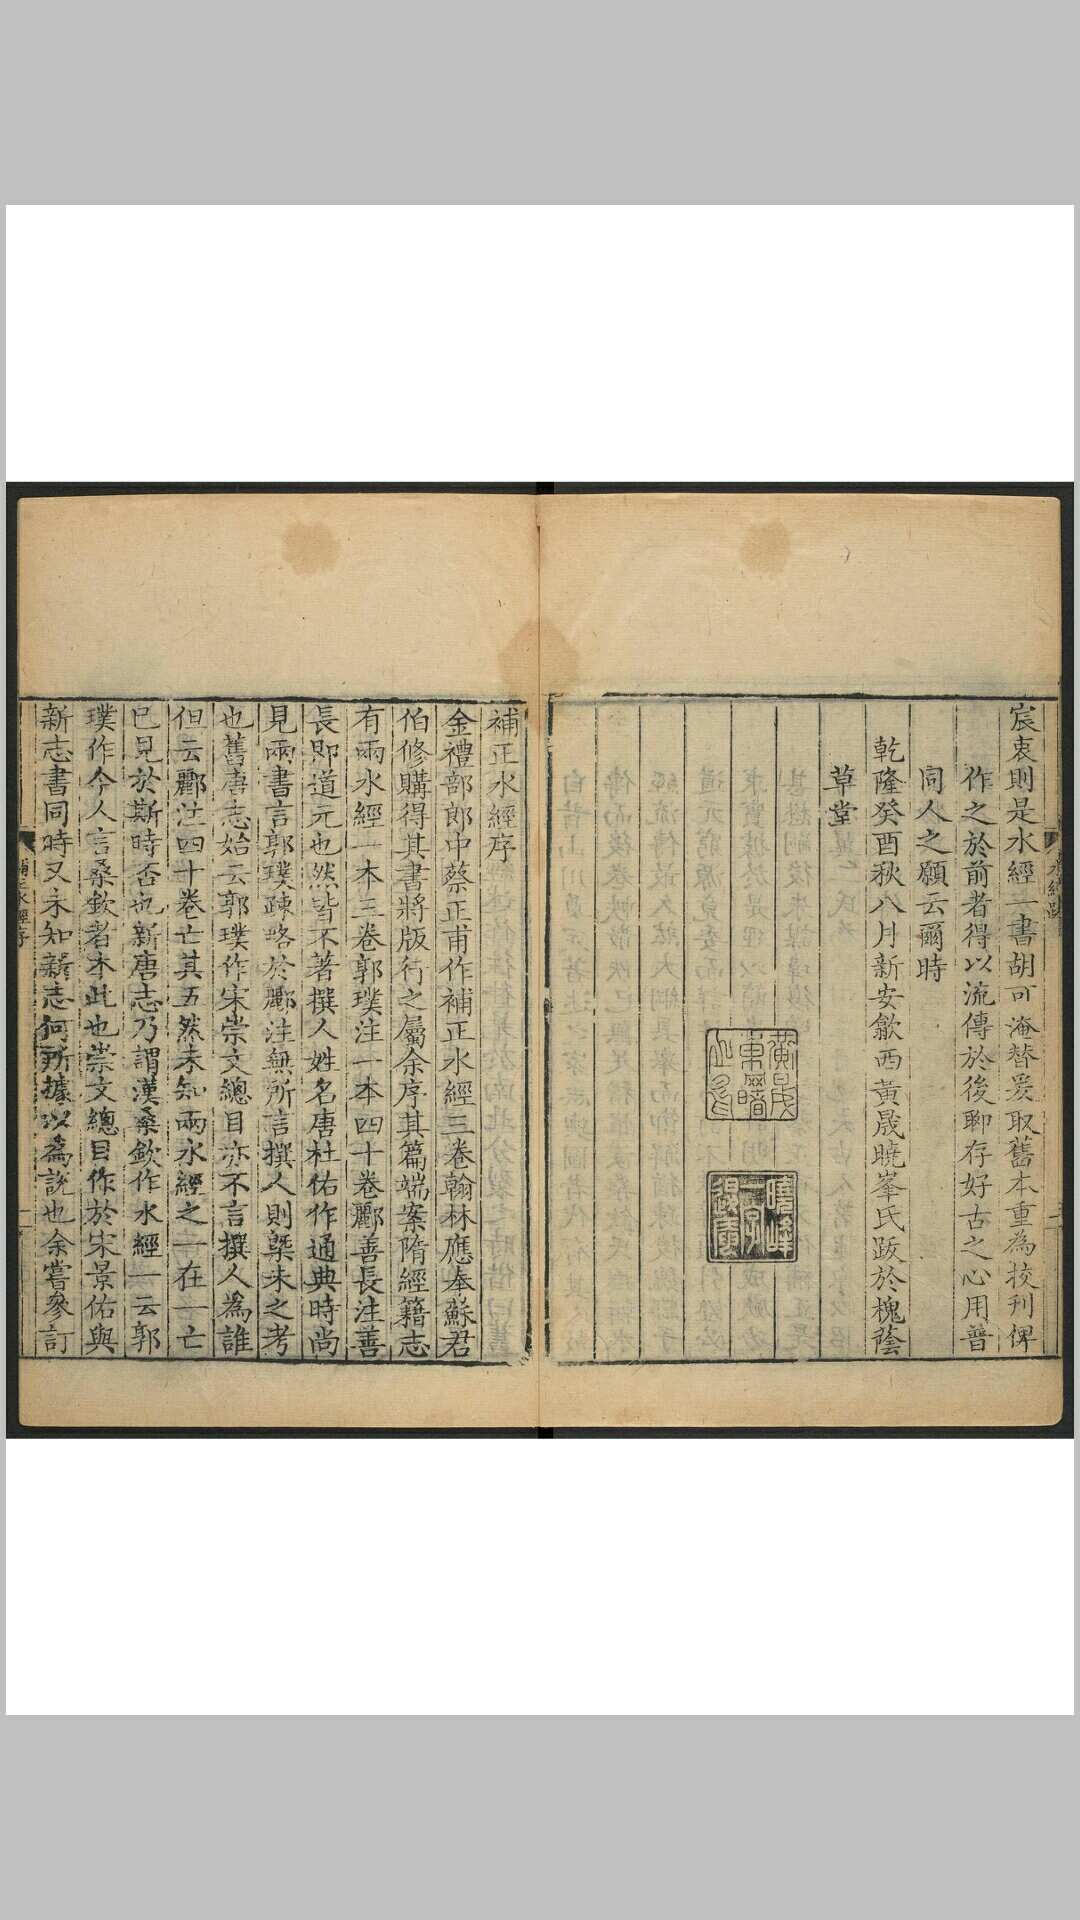 宸衷則是水經一書胡可淹替爰取舊本重為挍刋俾
作之於前者得以流傳於後聊存好古之心用普
同人之願云爾時
乾隆癸酉秋八月新安歙西黃晟曉峯氏跋於槐蔭
草堂
補正水經序
金禮部郎中蔡正甫作補正水經三卷翰林應奉蘇君
伯修購得其書將版行之屬余序其篇端案隋經籍志
有兩水經一本三卷郭璞注一本四十卷酈善長注善
長即道元也然皆不著撰人姓名唐杜佑作通典時尚
見兩書言郭璞疎略於酈注無所言撰人則槩未之考
也舊唐志始云郭璞作宋崇文總目亦不言撰人為誰
但云酈注四十卷亡其五然未知兩水經之一在一亡
已見於斯時否也新唐志乃謂漢桑欽作水經一云郭
璞作今人言桑欽者本此也崇文總目作於宋景佑與
新志書同時又未知新志何所據以為說也余嘗參訂
補正水經序